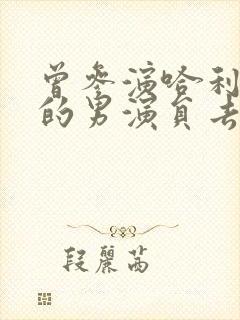 曾參演哈利
的男演員去
段麗茜